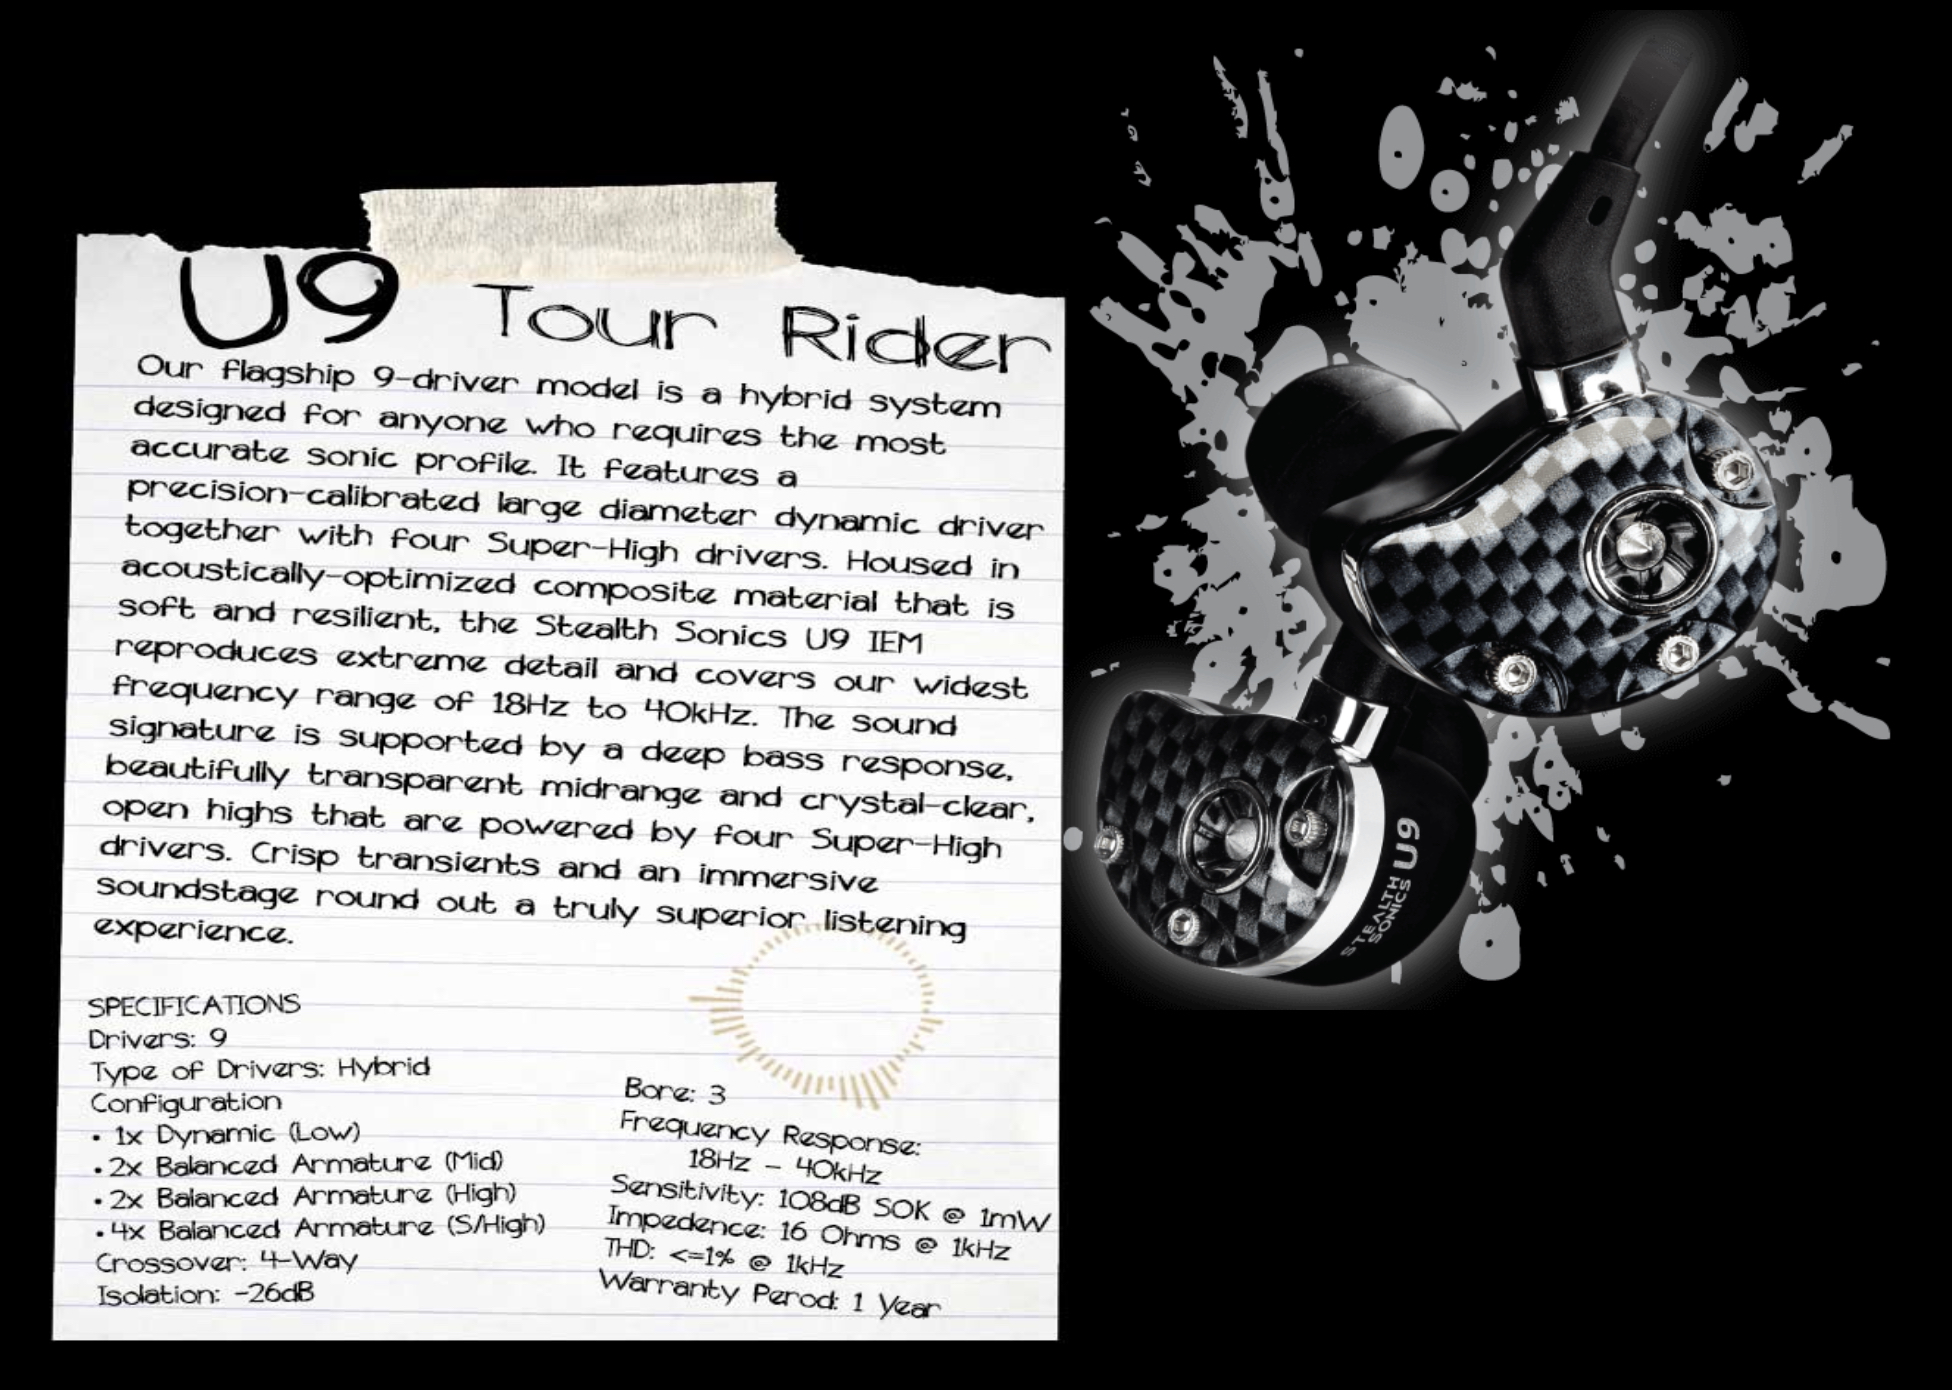 U9 Tour Rider
Our flagship 9-driver model is a hybrid system
designed for anyone who requires the most
accurate sonic profile. It features a
precision-calibrated large diameter dynamic driver
together with four Super-High drivers. Housed in
acoustically-optimized composite material that is
soft and resilient, the Stealth Sonics U9 IEM
reproduces extreme detail and covers our widest
frequency range of 18Hz to 40kHz. The sound
signature is supported by a deep bass response,
beautifully transparent midrange and crystal-clear,
open highs that are powered by four Super-High
drivers. Crisp transients and an immersive
soundstage round out a truly superior listening
experience.
SPECIFICATIONS
Drivers: 9
Type of Drivers: Hybrid
Configuration
• 1x Dynamic (Low)
• 2x Balanced Armature (Mid)
• 2x Balanced Armature (High)
• 4x Balanced Armature (S/High)
Crossover: 4-Way
Isolation: -26dB
Bore: 3
Frequency Response:
18Hz - 40kHz
Sensitivity: 108dB SOK @ 1mW
Impedence: 16 Ohms @ 1kHz
THD: <=1% @ 1kHz
Warranty Perod: 1 Year
STEALTH
SONICS U9